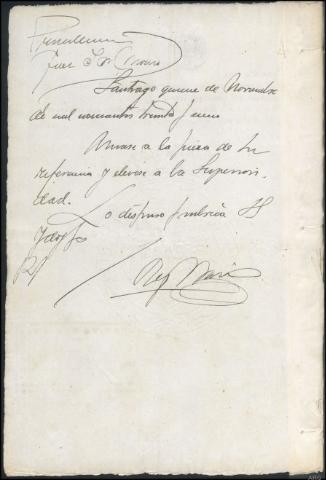 Providencia
Juez Sr
Santiago quince de Noviembre
de mil novecientos treinta y uno
Unase a la pieza de su
referencia y elevese a la Superiori-
dad.
Lo dispuso y rubrica SSª
y doy fe